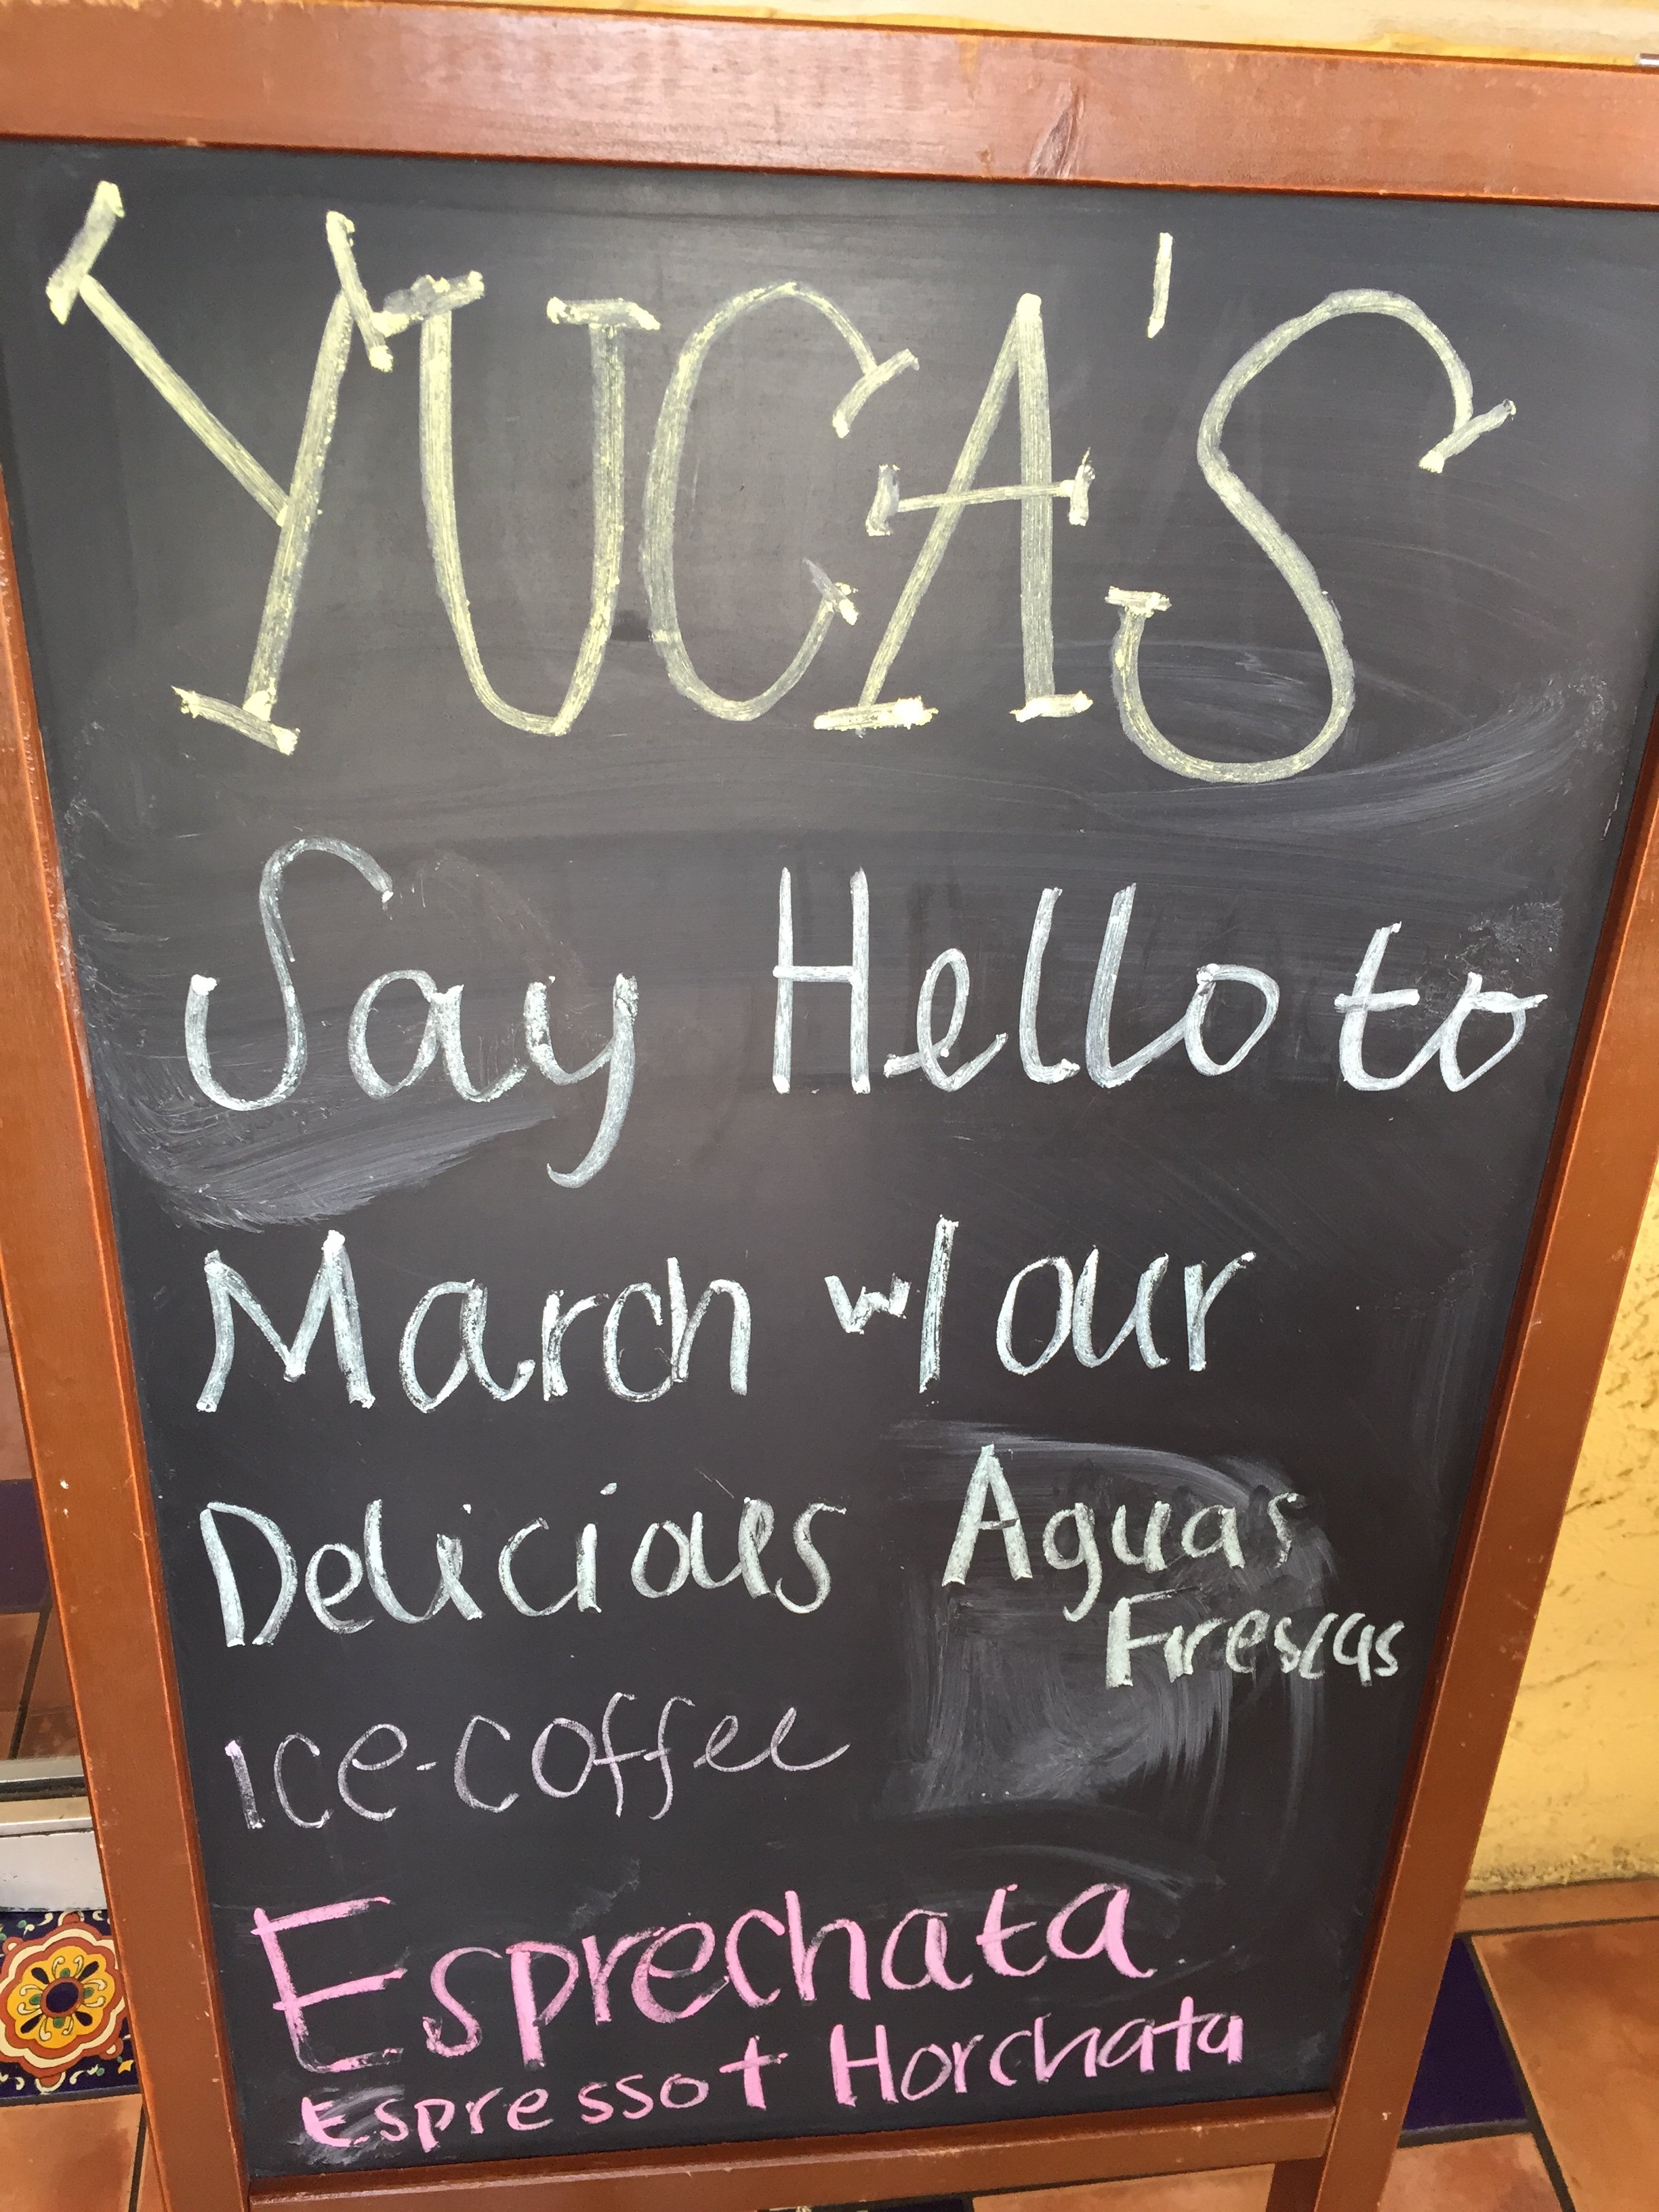 YUCA'S
Say Hello to
March w/ our
Delicious Aguas
Frescas
Ice-coffee
Esprechata
Espresso + Horchata